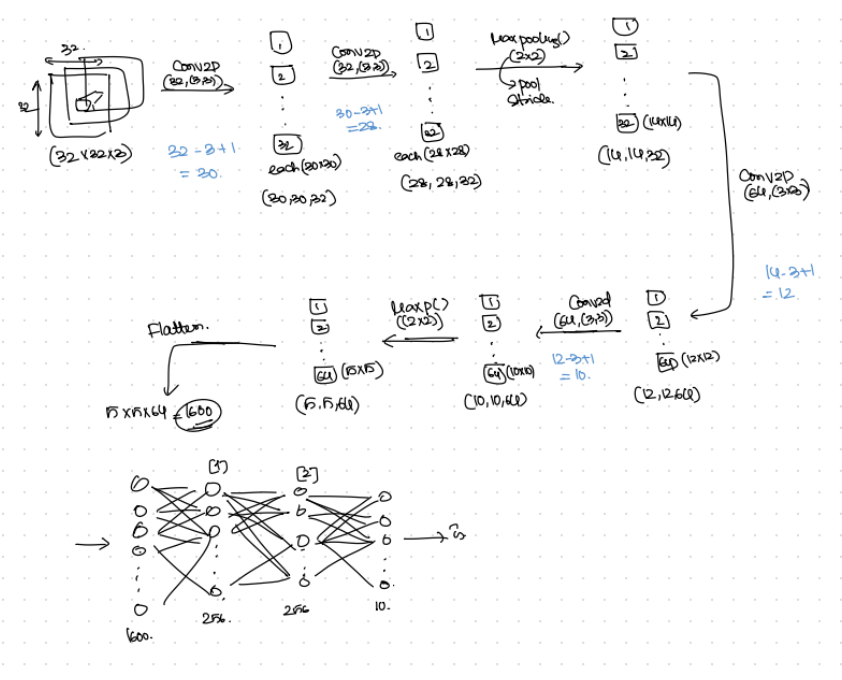 32.
32
(32x32x3)
Conv2D
(32,(3,3))
32-3+1
= 30.
1
2
32
each(30x30)
(30,30,32)
Conv2D
(32,(3,3))
30-3+1
=28.
1
2
32
each(28x28)
(28, 28, 32)
Maxpooling()
(2x2)
pool
Stride.
1
2
32 (14x14)
(14,14,32)
Conv2D
(64,(3x3)
14-3+1
= 12
1
2
64 (12x12)
(12,12,64)
Conv2d
(64,(3,3))
12-3+1
= 10.
1
2
64 (10x10)
(10,10,64)
MaxP()
((2x2))
1
2
64 (5x5)
(5,5,64)
Flatten.
5x5x64 = 1600
[1]
[2]
1600.
256.
256
10.
ŷ